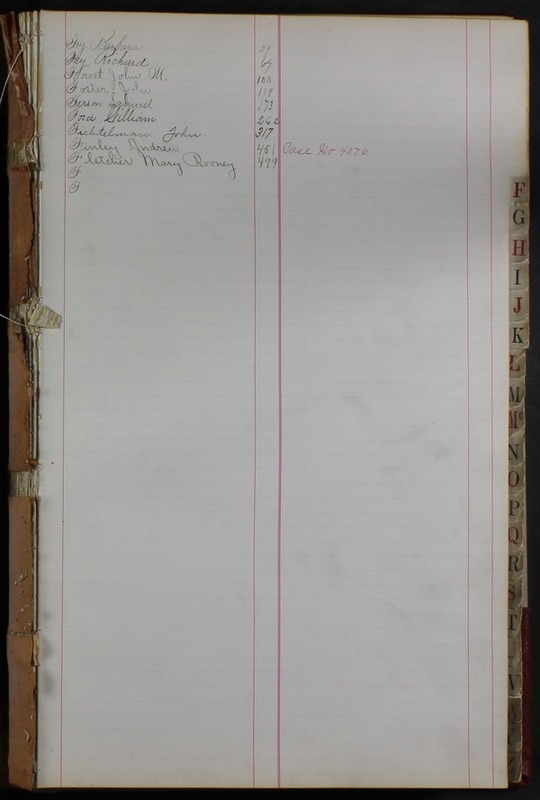 Fry Barbara 29
Fry Richard 64
Frost John M. 103
Foster John 119
Ferson Samuel 173
Ford William 262
Fichtelman John. 317
Finley Andrew 451 Case No 4076
Fletcher Mary Rooney 499
F
F
F
G
H
I
J
K
L
M
Mc
N
O
P
Q
R
S
T
V